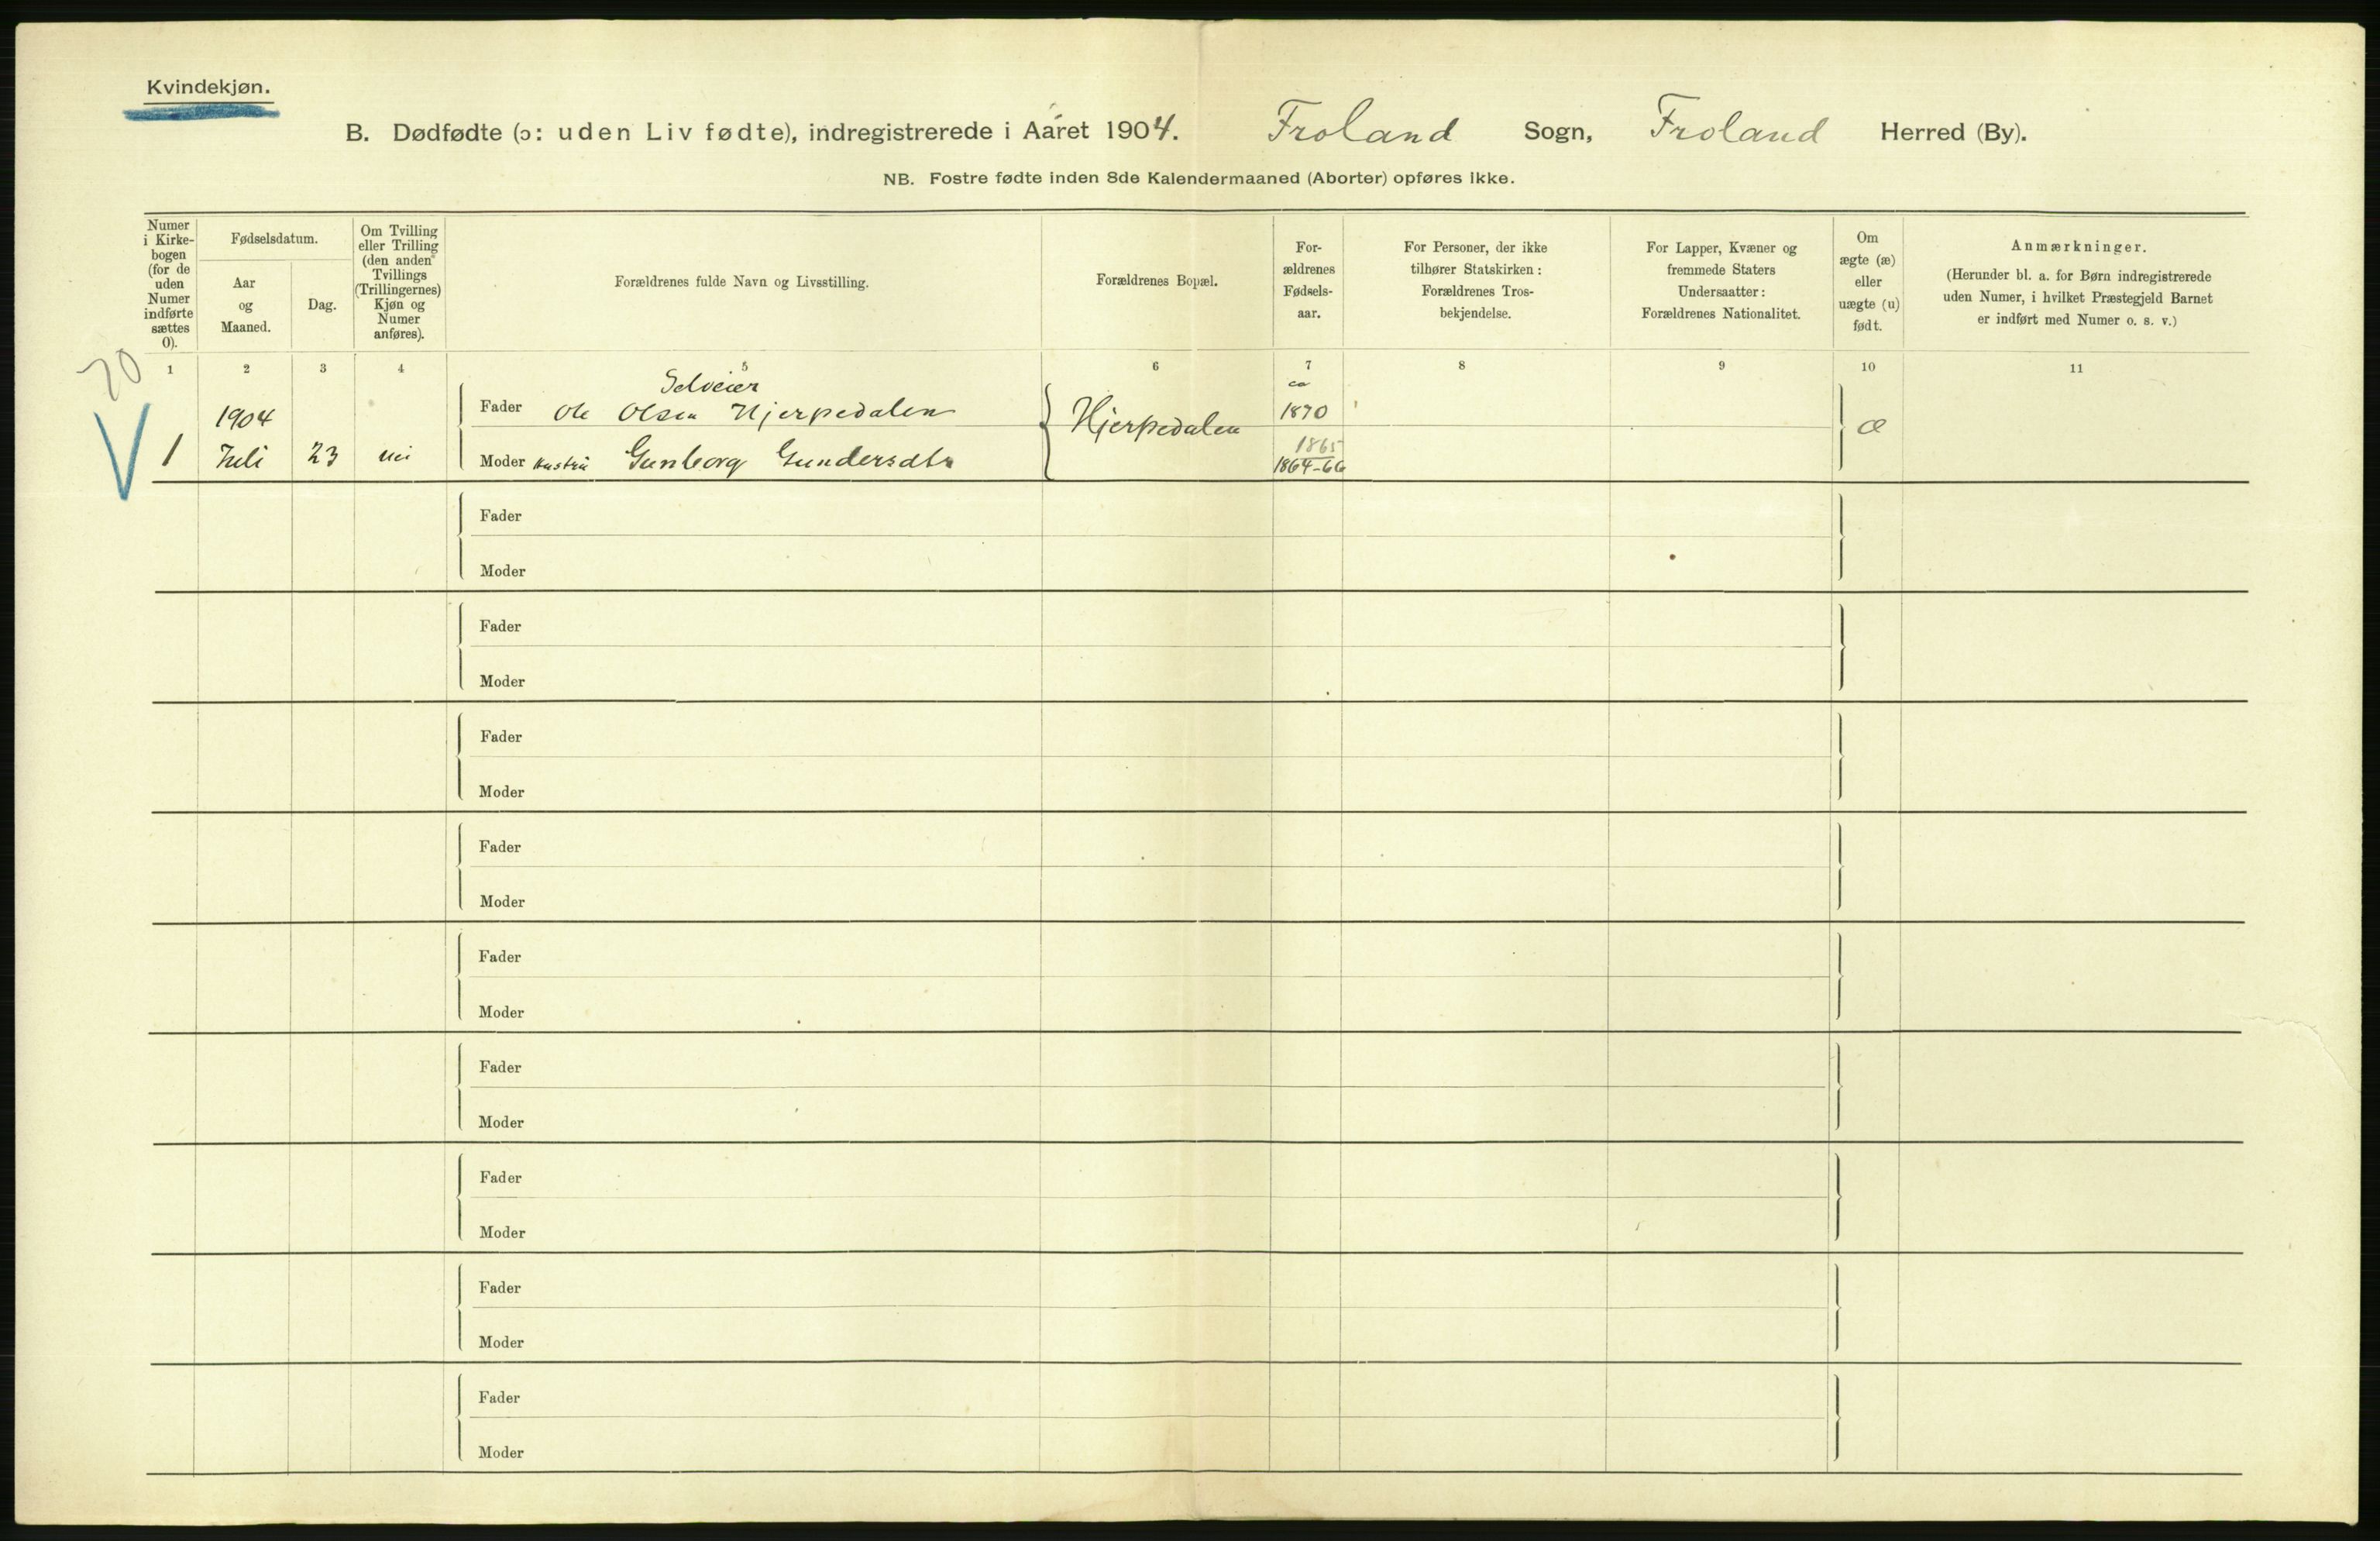 Kvindekjøn.
B. Dødfødte (ɔ: uden Liv fødte), indregistrerede i Aaret 1904. Froland Sogn, Froland Herred (By).
NB. Fostre fødte inden 8de Kalendermaaned (Aborter) opføres ikke.
Numer i Kirke-bogen (for de uden Numer indførte sættes 0).
Fødselsdatum.
Aar og Maaned.
Dag.
Om Tvilling eller Trilling (den anden Tvillings (Trillingernes) Kjøn og Numer anføres).
Forældrenes fulde Navn og Livsstilling.
Forældrenes Bopæl.
For-ældrenes Fødsels-aar.
For Personer, der ikke tilhører Statskirken: Forældrenes Tros-bekjendelse.
For Lapper, Kvæner og fremmede Staters Undersaatter: Forældrenes Nationalitet.
Om ægte (æ) eller uægte (u) født.
Anmærkninger.
(Herunder bl. a. for Børn indregistrerede uden Numer, i hvilket Præstegjeld Barnet er indført med Numer o. s. v.)
1 2 3 4 5 6 7 8 9 10 11
20
Selveier
ca
1904 Fader Ole Olsen Hjerpedalen Hjerpedalen 1870 æ
1865
V 1 Juli 23 nei Moder Hustru Gunborg Gundersdtr 1864-66
Fader
Moder
Fader
Moder
Fader
Moder
Fader
Moder
Fader
Moder
Fader
Moder
Fader
Moder
Fader
Moder
Fader
Moder